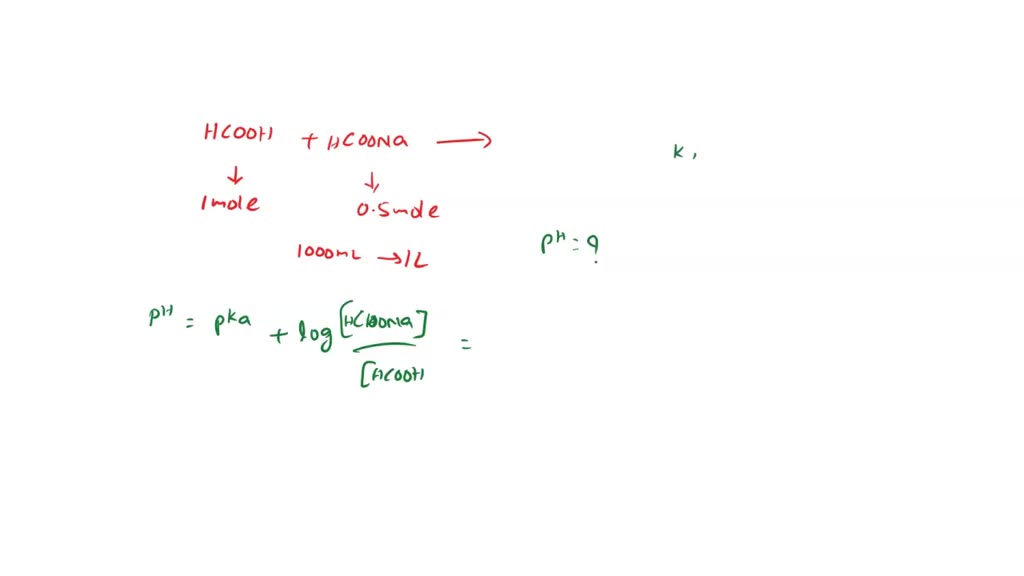 HCOOH + HCOONa →
↓ ↓
1 mole 0.5 mole
1000 mL → 1L
K,
pH = ?
pH = pka + log [HCOONa] / [HCOOH =